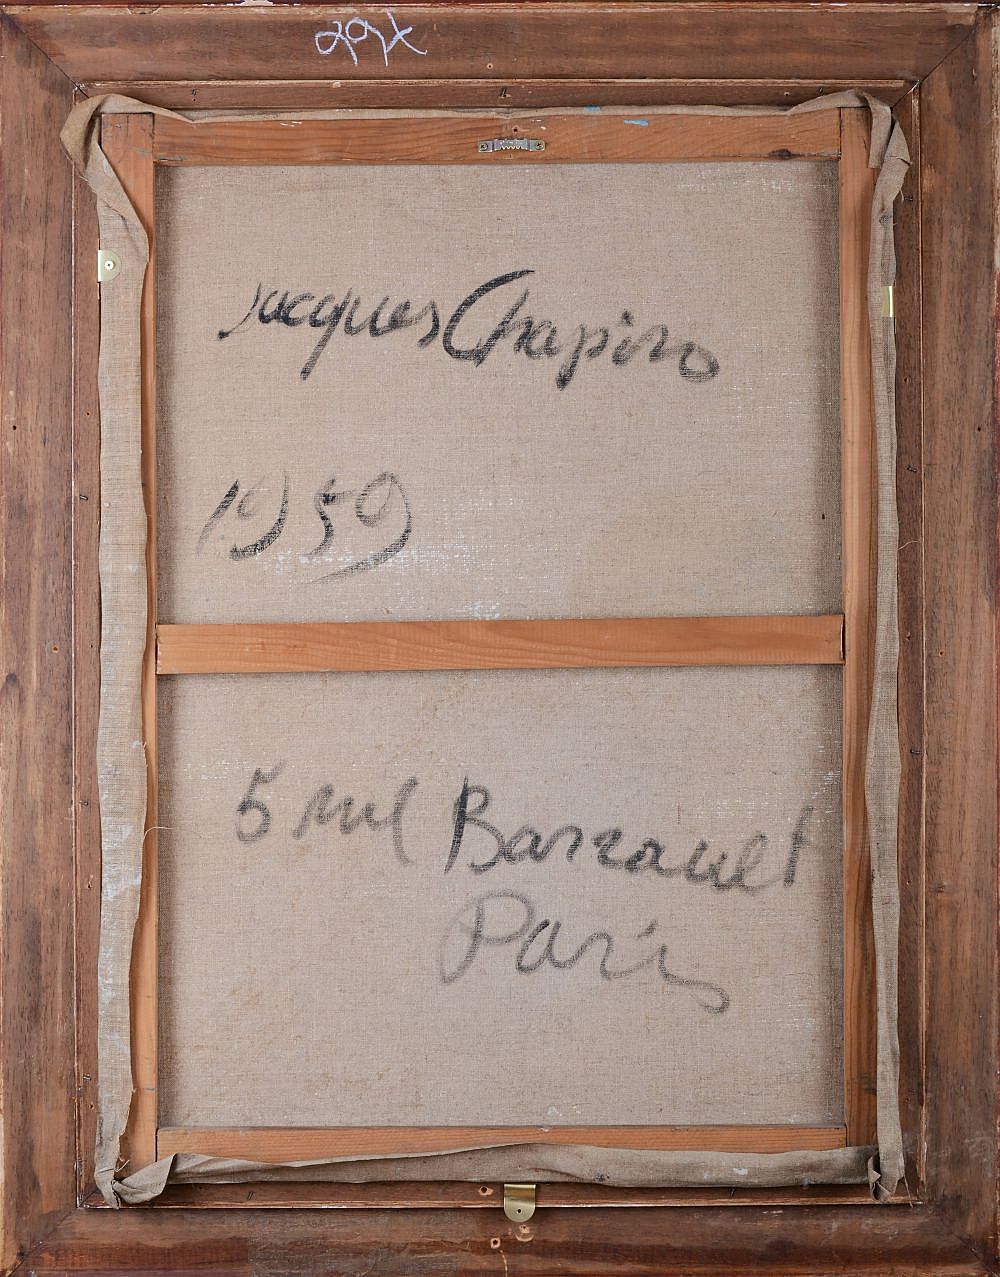 Jacques Chapiro
1959
5 rue Barrault
Paris